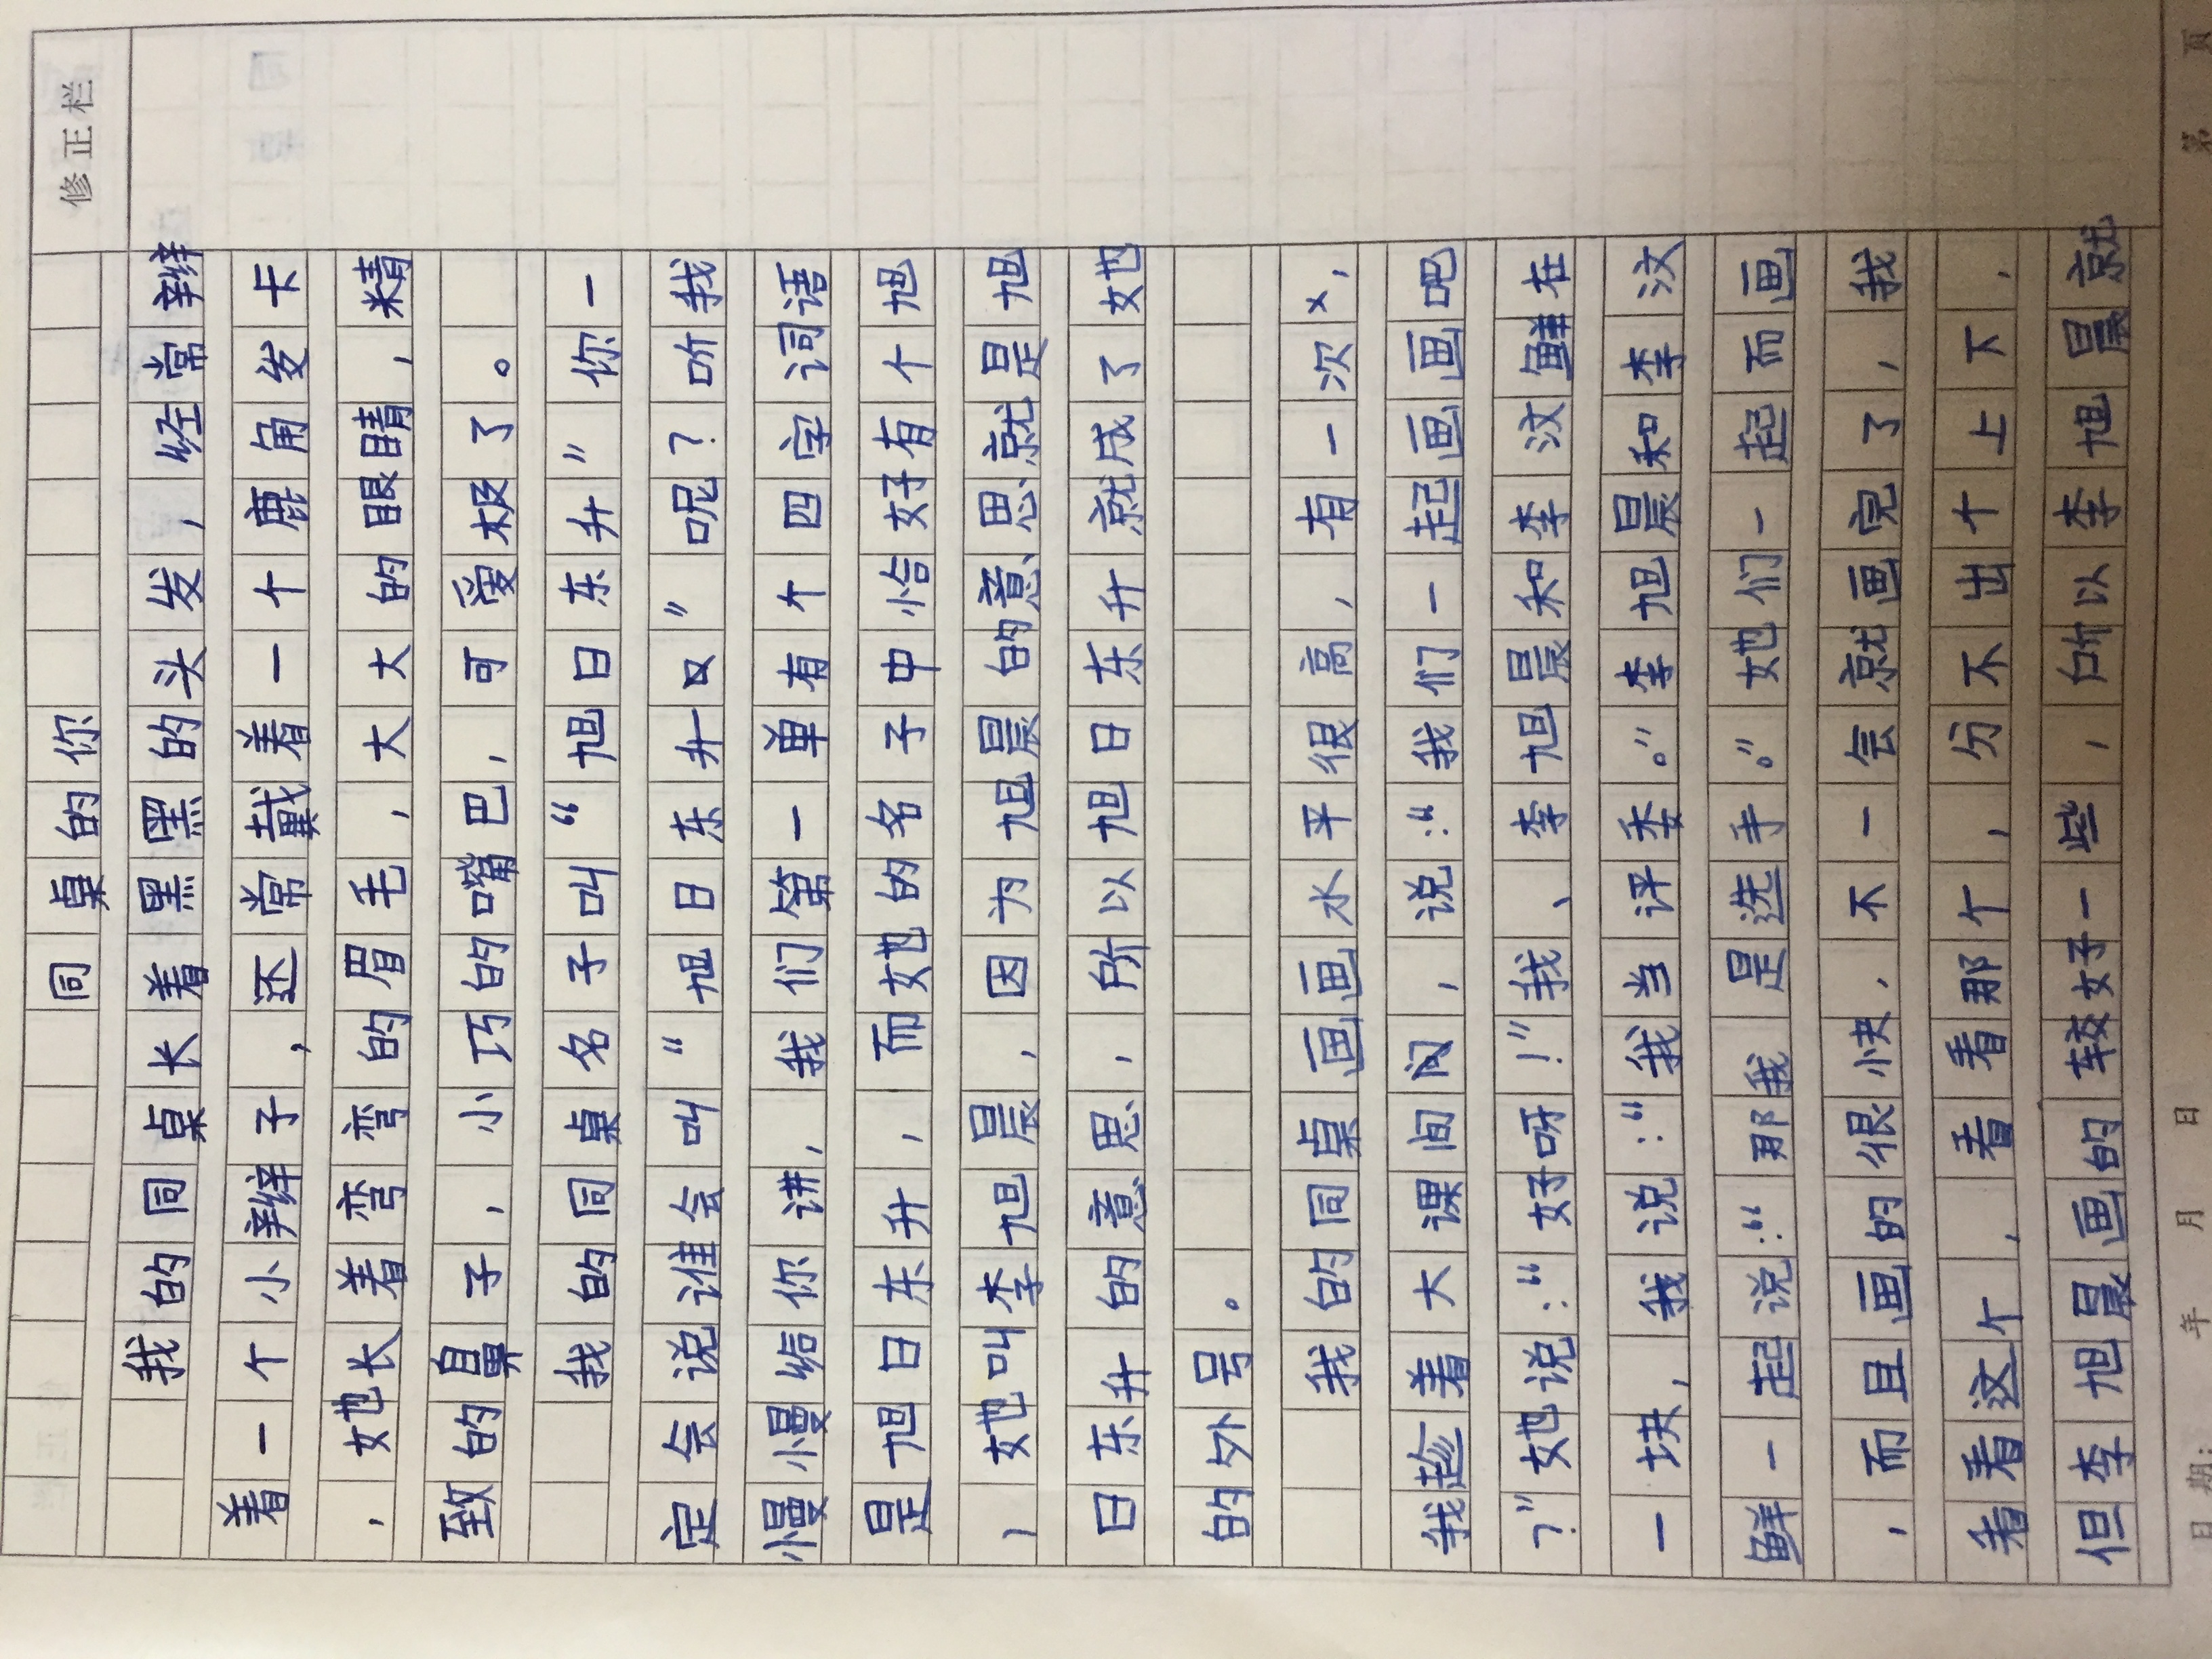 修正栏
同桌的你
我的同桌长着黑黑的头发，经常辫
着一个小辫子，还常戴着一个鹿角发卡
，她长着弯弯的眉毛，大大的眼睛，精
致的鼻子，小巧的嘴巴，可爱极了。
我的同桌名子叫“旭日东升”你一
定会说谁会叫“旭日东升”呢？听我
慢慢给你讲，我们第一单有个四字词语
是旭日东升，而她的名子中恰好有个旭
，她叫李旭晨，因为旭晨的意思就是旭
日东升的意思，所以旭日东升就成了她
的外号。
我的同桌画画水平很高，有一次，
我趁着大课间，说：“我们一起画画吧
？”她说：“好呀！”我、李旭晨和李汶鲜在
一块，我说：“我当评委。”李旭晨和李汶
鲜一起说：“那我是选手。”她们一起而画
，而且画的很快，不一会就画完了，我
看看这个，看看那个，分不出个上下，
但李旭晨画的较好一些，所以李旭晨就
日期： 年 月 日 第 页